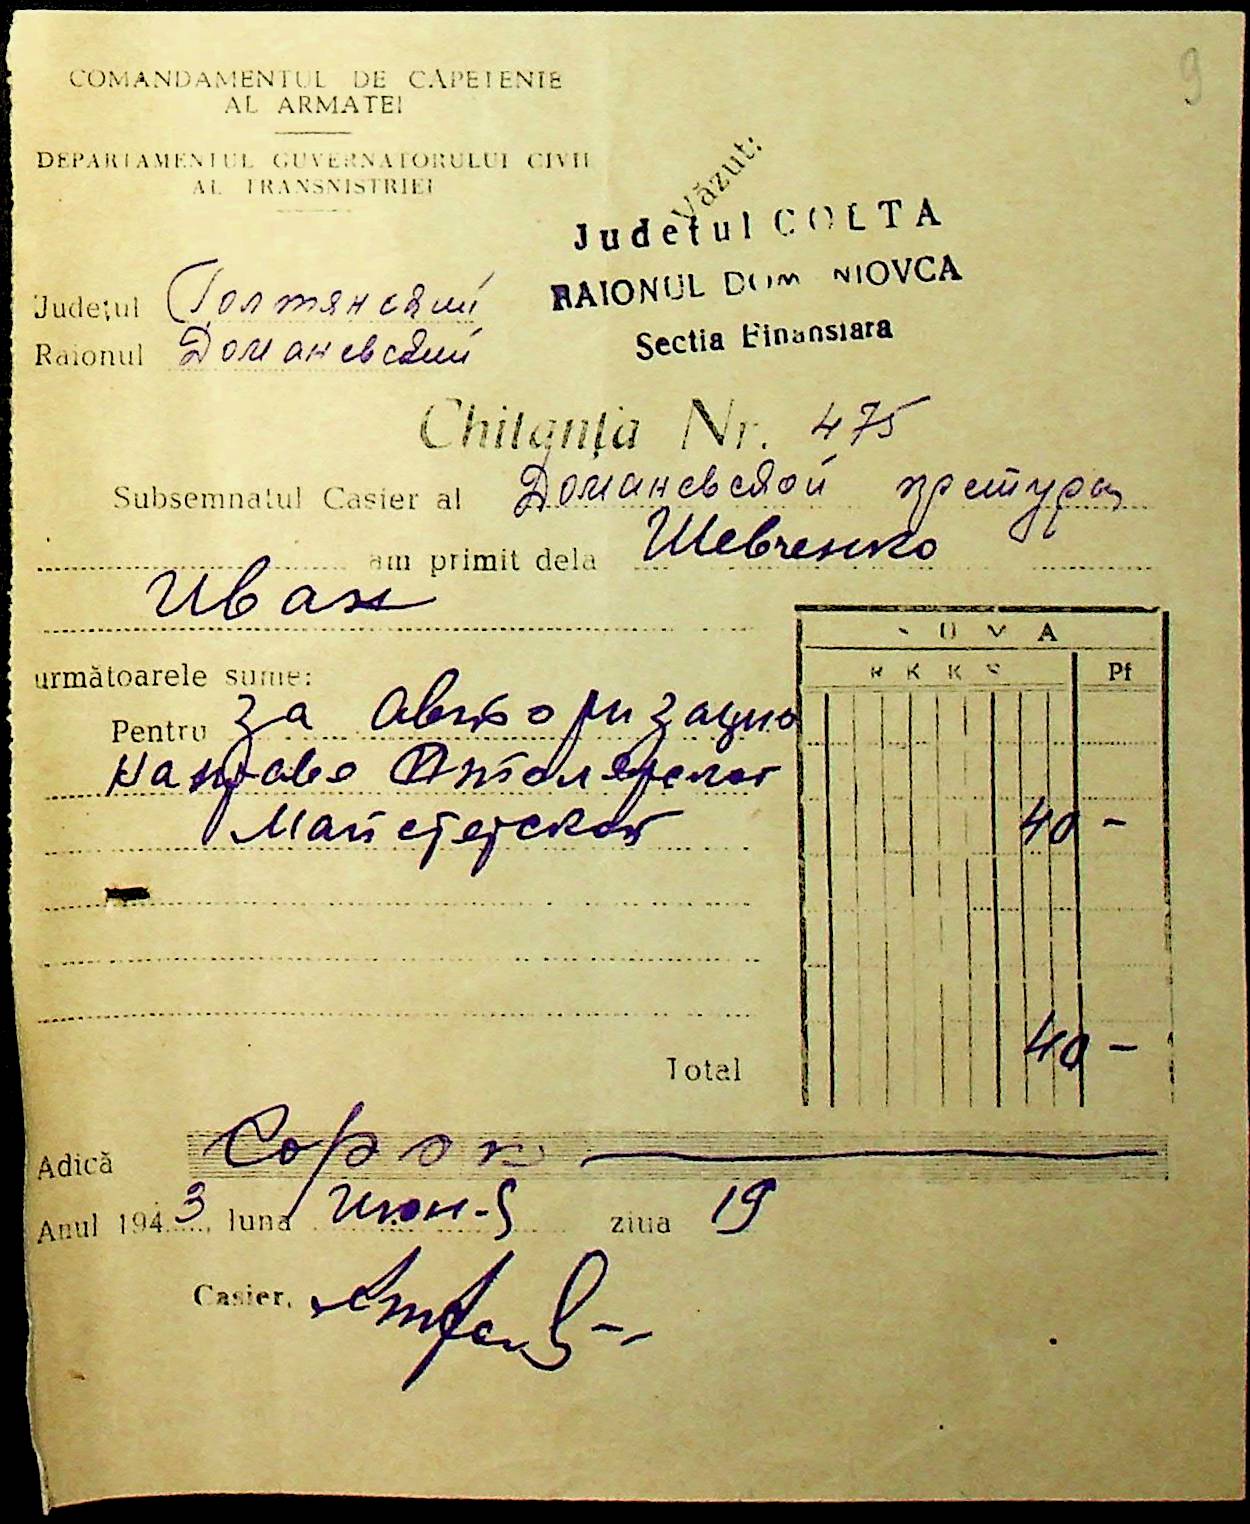 9
COMANDAMENTUL DE CĂPETENIE
AL ARMATEI
DEPARTAMENTUL GUVERNATORULUI CIVIL
AL TRANSNISTRIEI
Văzut:
Judeţul GOLTA
RAIONUL DOM NIOVCA
Sectia Finansiara
Judeţul Голтянский
Raionul Доманевский
Chitanţa Nr. 475
Subsemnatul Casier al Доманевской претуры
am primit dela Шевченко
Иван
următoarele sume:
SUMA
R K K S Pf
Pentru за авторизацию
на право Столярской
Майстерской
40 -
Total 40 -
Adică Сорок
Anul 1943 luna июн-я ziua 19
Casier,